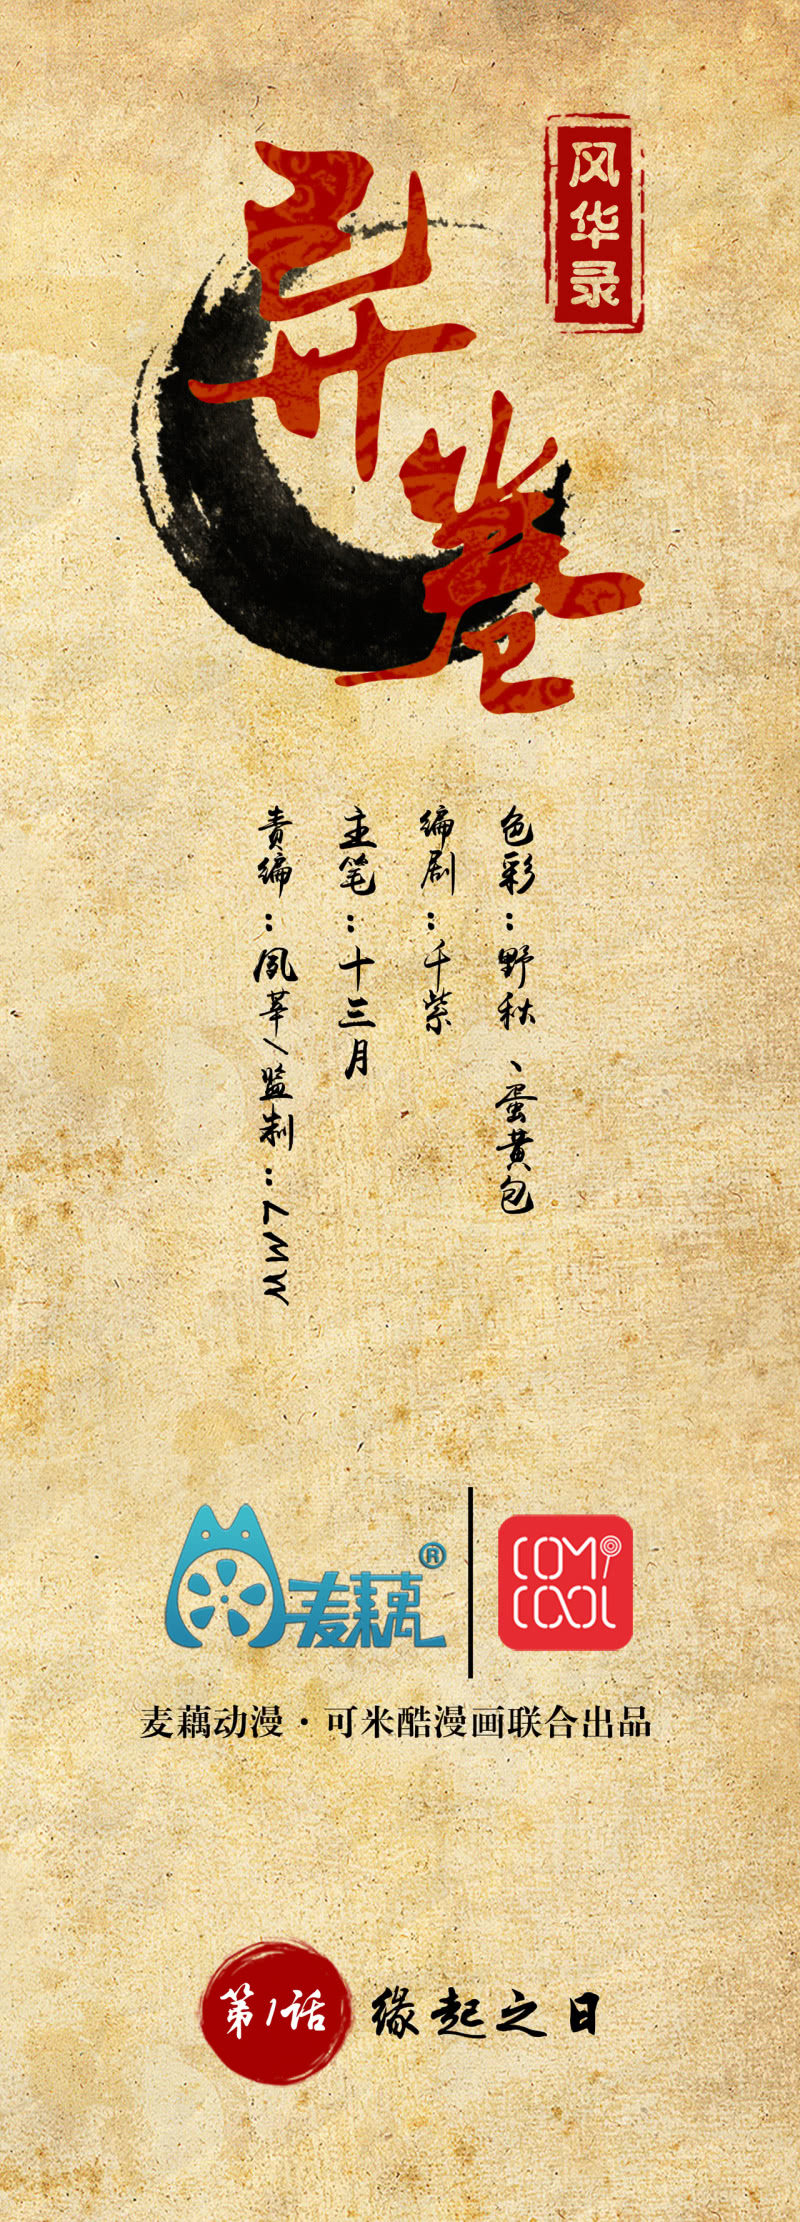 异卷
风华录
色彩：野秋、蛋黄包
编剧：千紫
主笔：十三月
责编：凨莘/监制：LMW
麦藕®
COMI
COOL
麦藕动漫·可米酷漫画联合出品
第1话
缘起之日